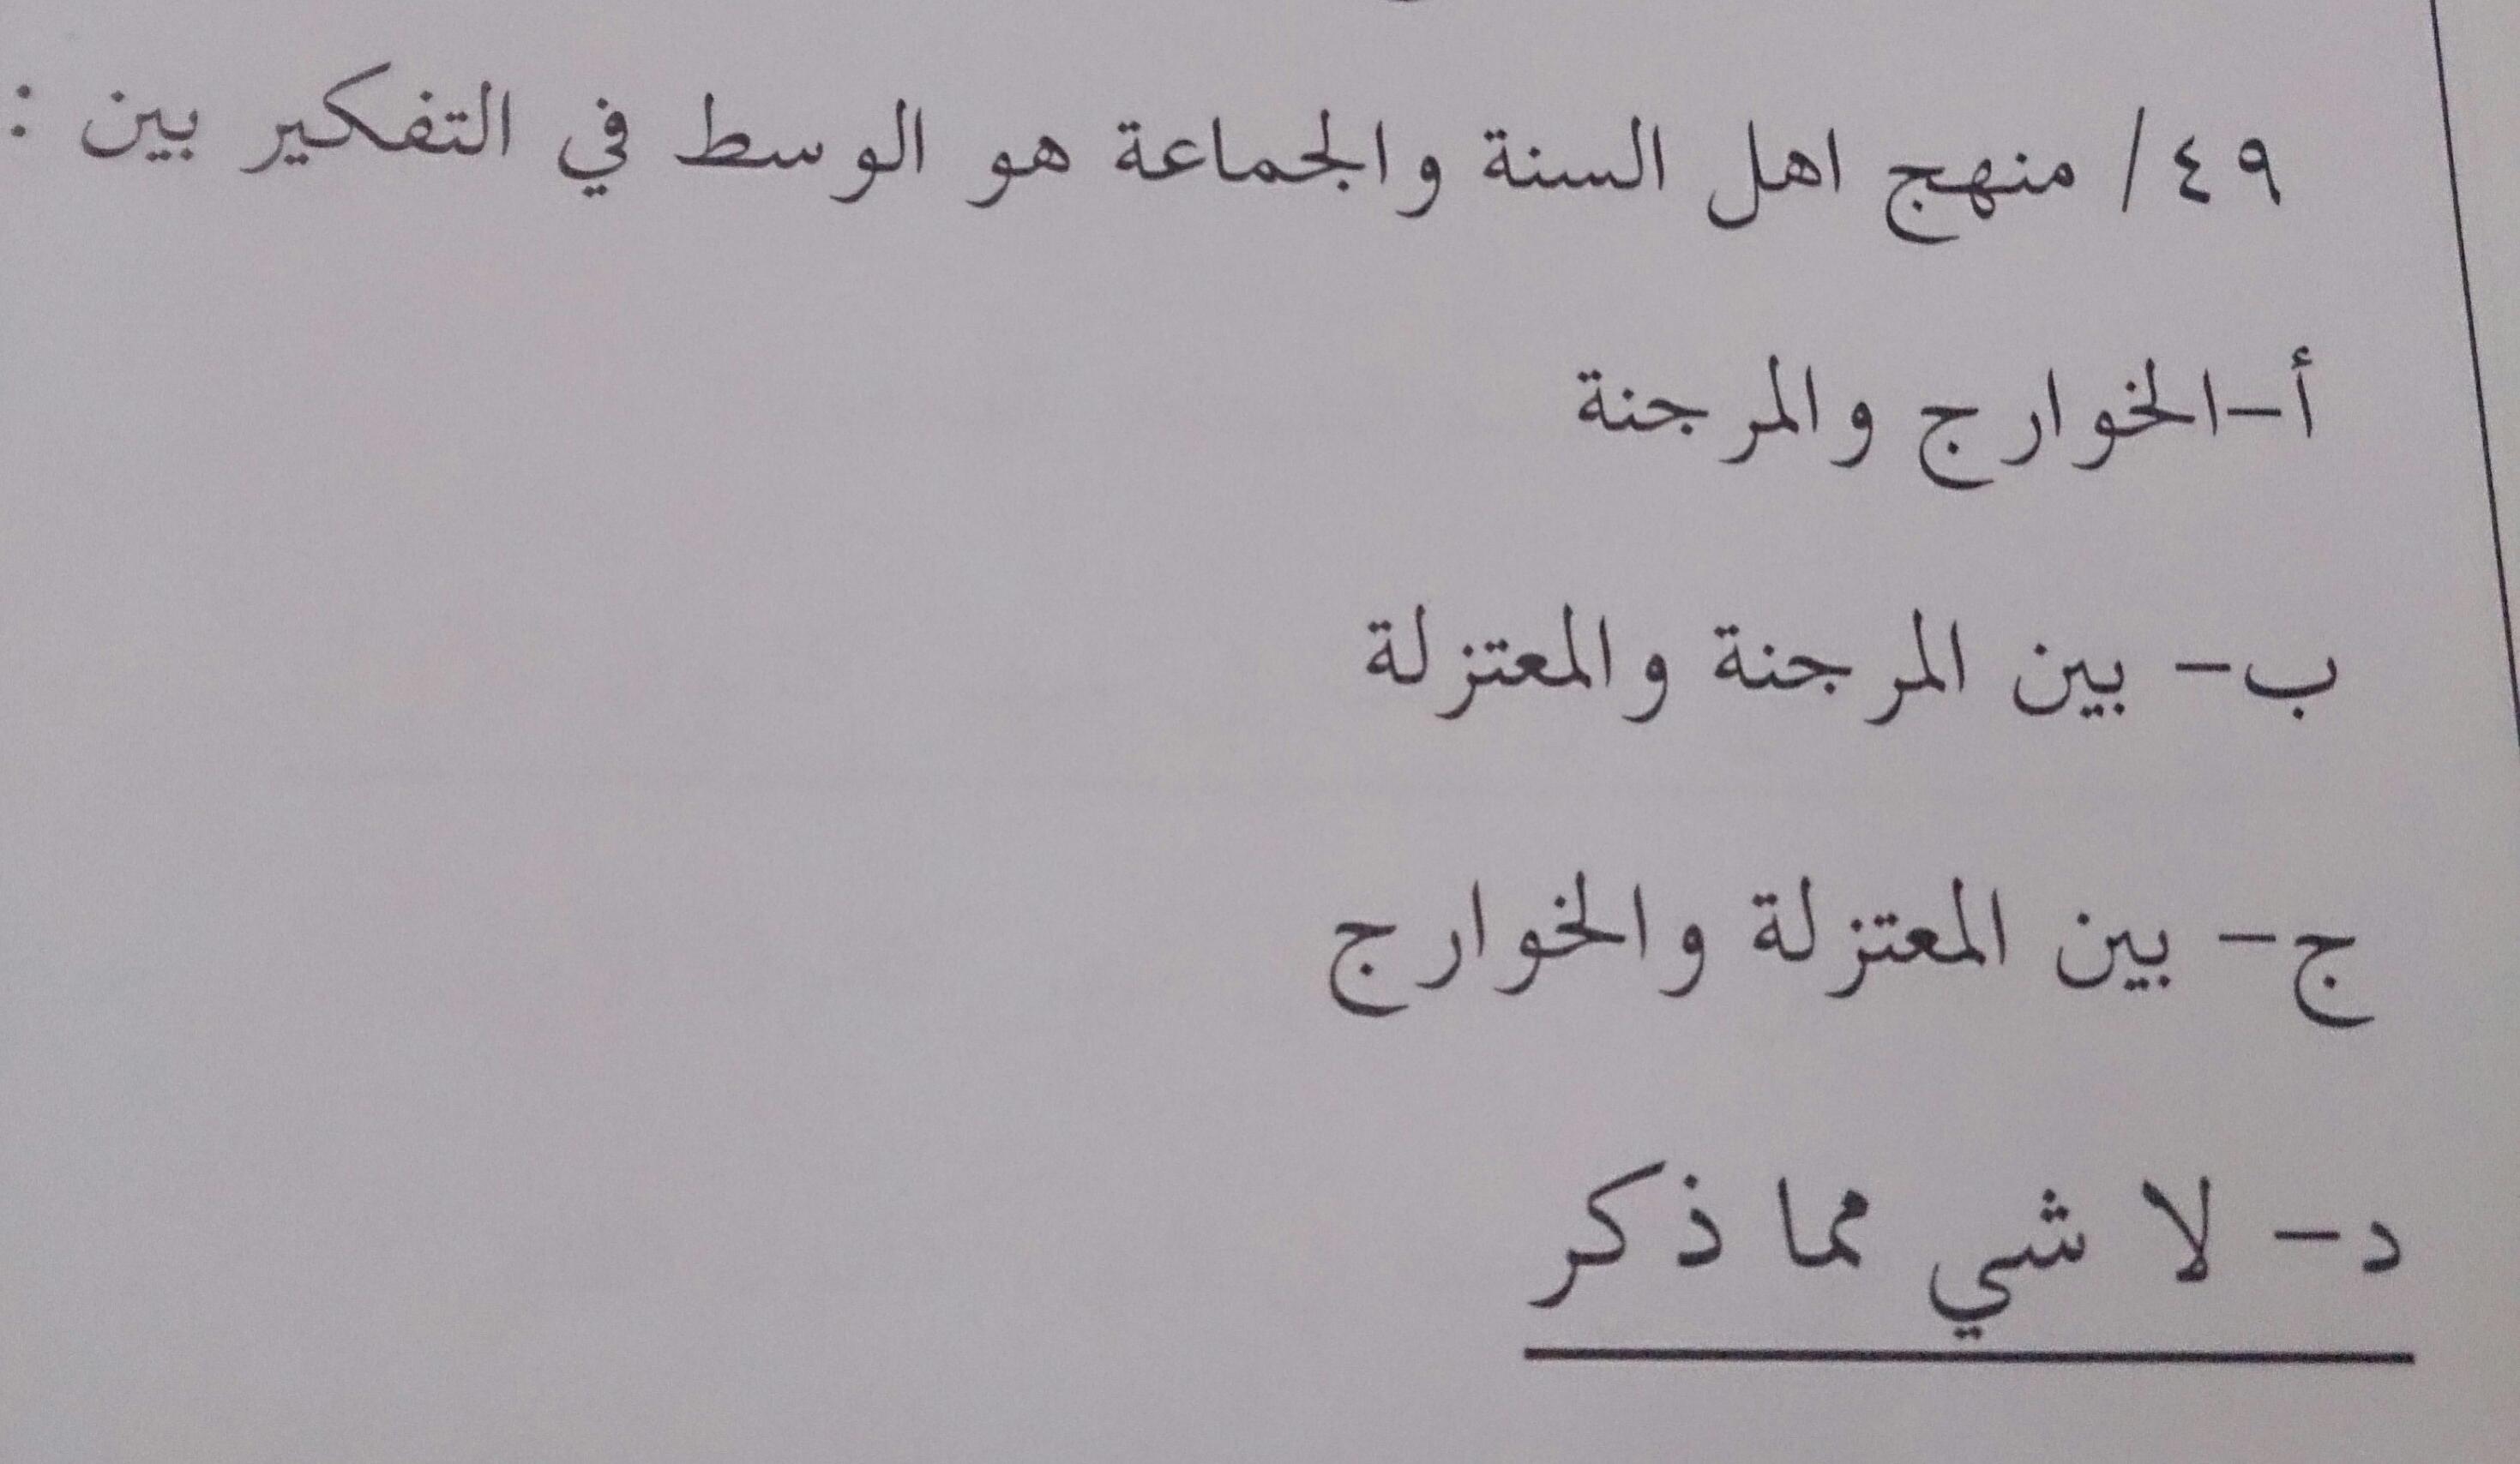 ٤٩/ منهج اهل السنة والجماعة هو الوسط في التفكير بين :
أ-الخوارج والمرجنة
ب- بين المرجنة والمعتزلة
ج- بين المعتزلة والخوارج
د- لا شي مما ذكر